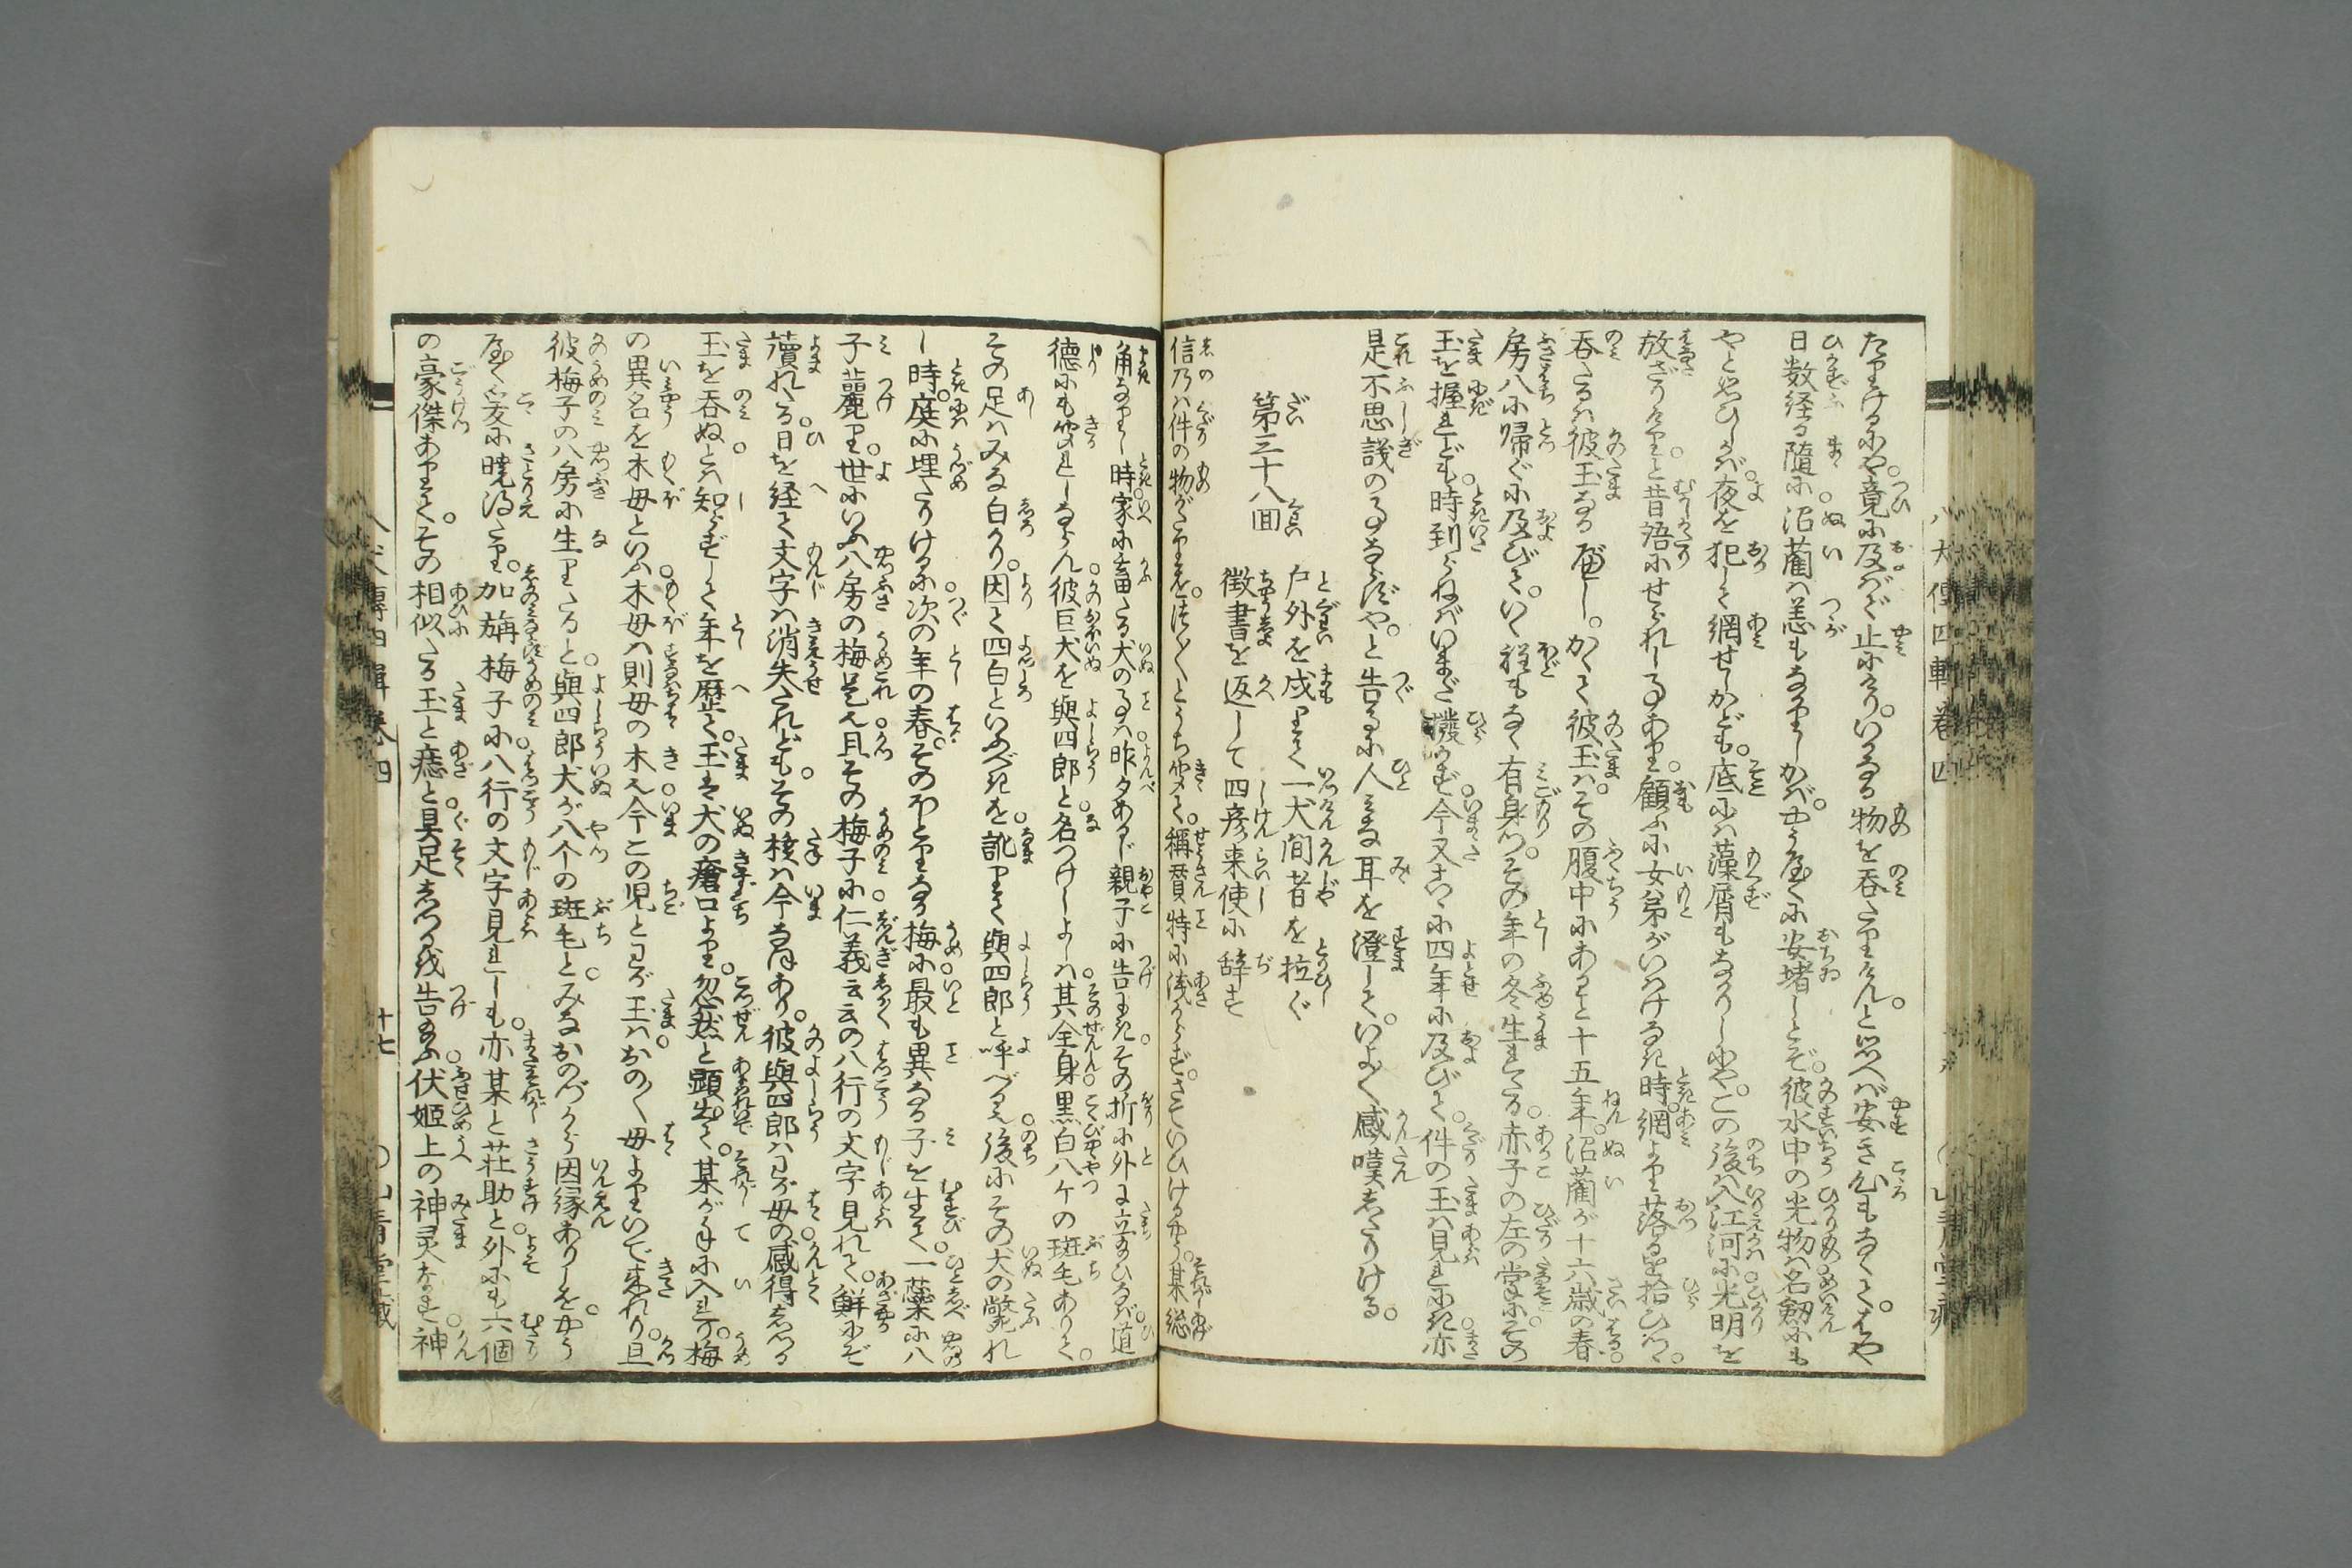 たりけるにや。竟に及ばで止にけり。いかなる物を呑たりけんと思へば安き心もなくて。はや
日数経る隨に沼藺は恙もなかりしかば。やうやくに安堵しとぞ。彼水中の光物は名劔にも
やと思ひしかば夜を犯して網せしかども。底には藻屑もなかりしにや。この後は入江河に光明を
放ざりけりと昔語にせられし事あり。顧ふに女弟がいはけなき時。網より落るを拾ひつゝ
呑たるは彼玉なるべし。かくて彼玉は。その腹中にあること十五年。沼藺が十六歳の春
房八に帰ぐに及びて。いく程もなく有身つ。その年の冬生れたる。赤子の左の掌に。その
玉を握れども。時到らねばいまだ撥かず。今又こゝに四年に及びて。件の玉は見れにき。亦
是不思議の事ならずや。と告るに人みな耳を澄して。いよゝ感嘆したりける。
第三十八回
戸外を戍りて一犬間者を拉ぐ
徴書を返して四彦来使に辞す
信乃は件の物がたりを。つく〴〵とうち聞て。稱賛特に淺からず。さていひけるやう。某総
角なりし時家に畜たる犬の事は昨夕あるじ親子に告にき。その折に外に立給ひなば道
徳にも聞れしならん。彼巨犬を與四郎と名つけしよしは。其全身黒白八ケの斑毛ありて。
その足はみな白かり。因て四白といふべきを。訛りて與四郎と呼べるなり。後にその犬の斃れ
し時。庭に埋たりけるに。次の年の春。そのほとりなる梅に最も異なる子を生て。一蘂に八
子𧄍り。世にいふ八房の梅是なり。且その梅子に仁義云云の八行の文字見れて。鮮にぞ
讀れたる。日を経て文字は消失たれども。その核は今なほあり。彼與四郎はわが母の感得しつる
玉を呑ぬとは知らずして年を歴て。玉は犬の瘡口より。忽然と顕出て。某が手に入れり。梅
の異名を木母といふ。木母は則母の木なり。今この児とわが玉は。おの〳〵母よりいで来れり。且
彼梅子の八房に生りたると。與四郎犬が八个の斑毛と。みなおのづから因縁ありしを。やう
やく爰に曉得たり。加旃梅子に八行の文字見れしも。亦某と荘助と。外にも六個
の豪傑ありて。その相似たる玉と痣と具足しつるを告給ふ。伏姫上の神灵なり。神
八犬傳四輯巻四
十七
〇山青堂藏
八犬傳四輯巻四